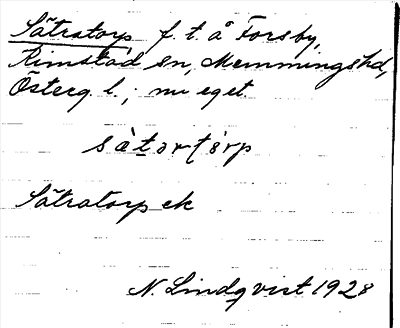 Sätratorp f. t. å Forsby,
Rimstad sn, Memmingshd,
Österg. l.; nu eget.
sàtərtòrp
Sätratorp ek
N. Lindqvist 1928